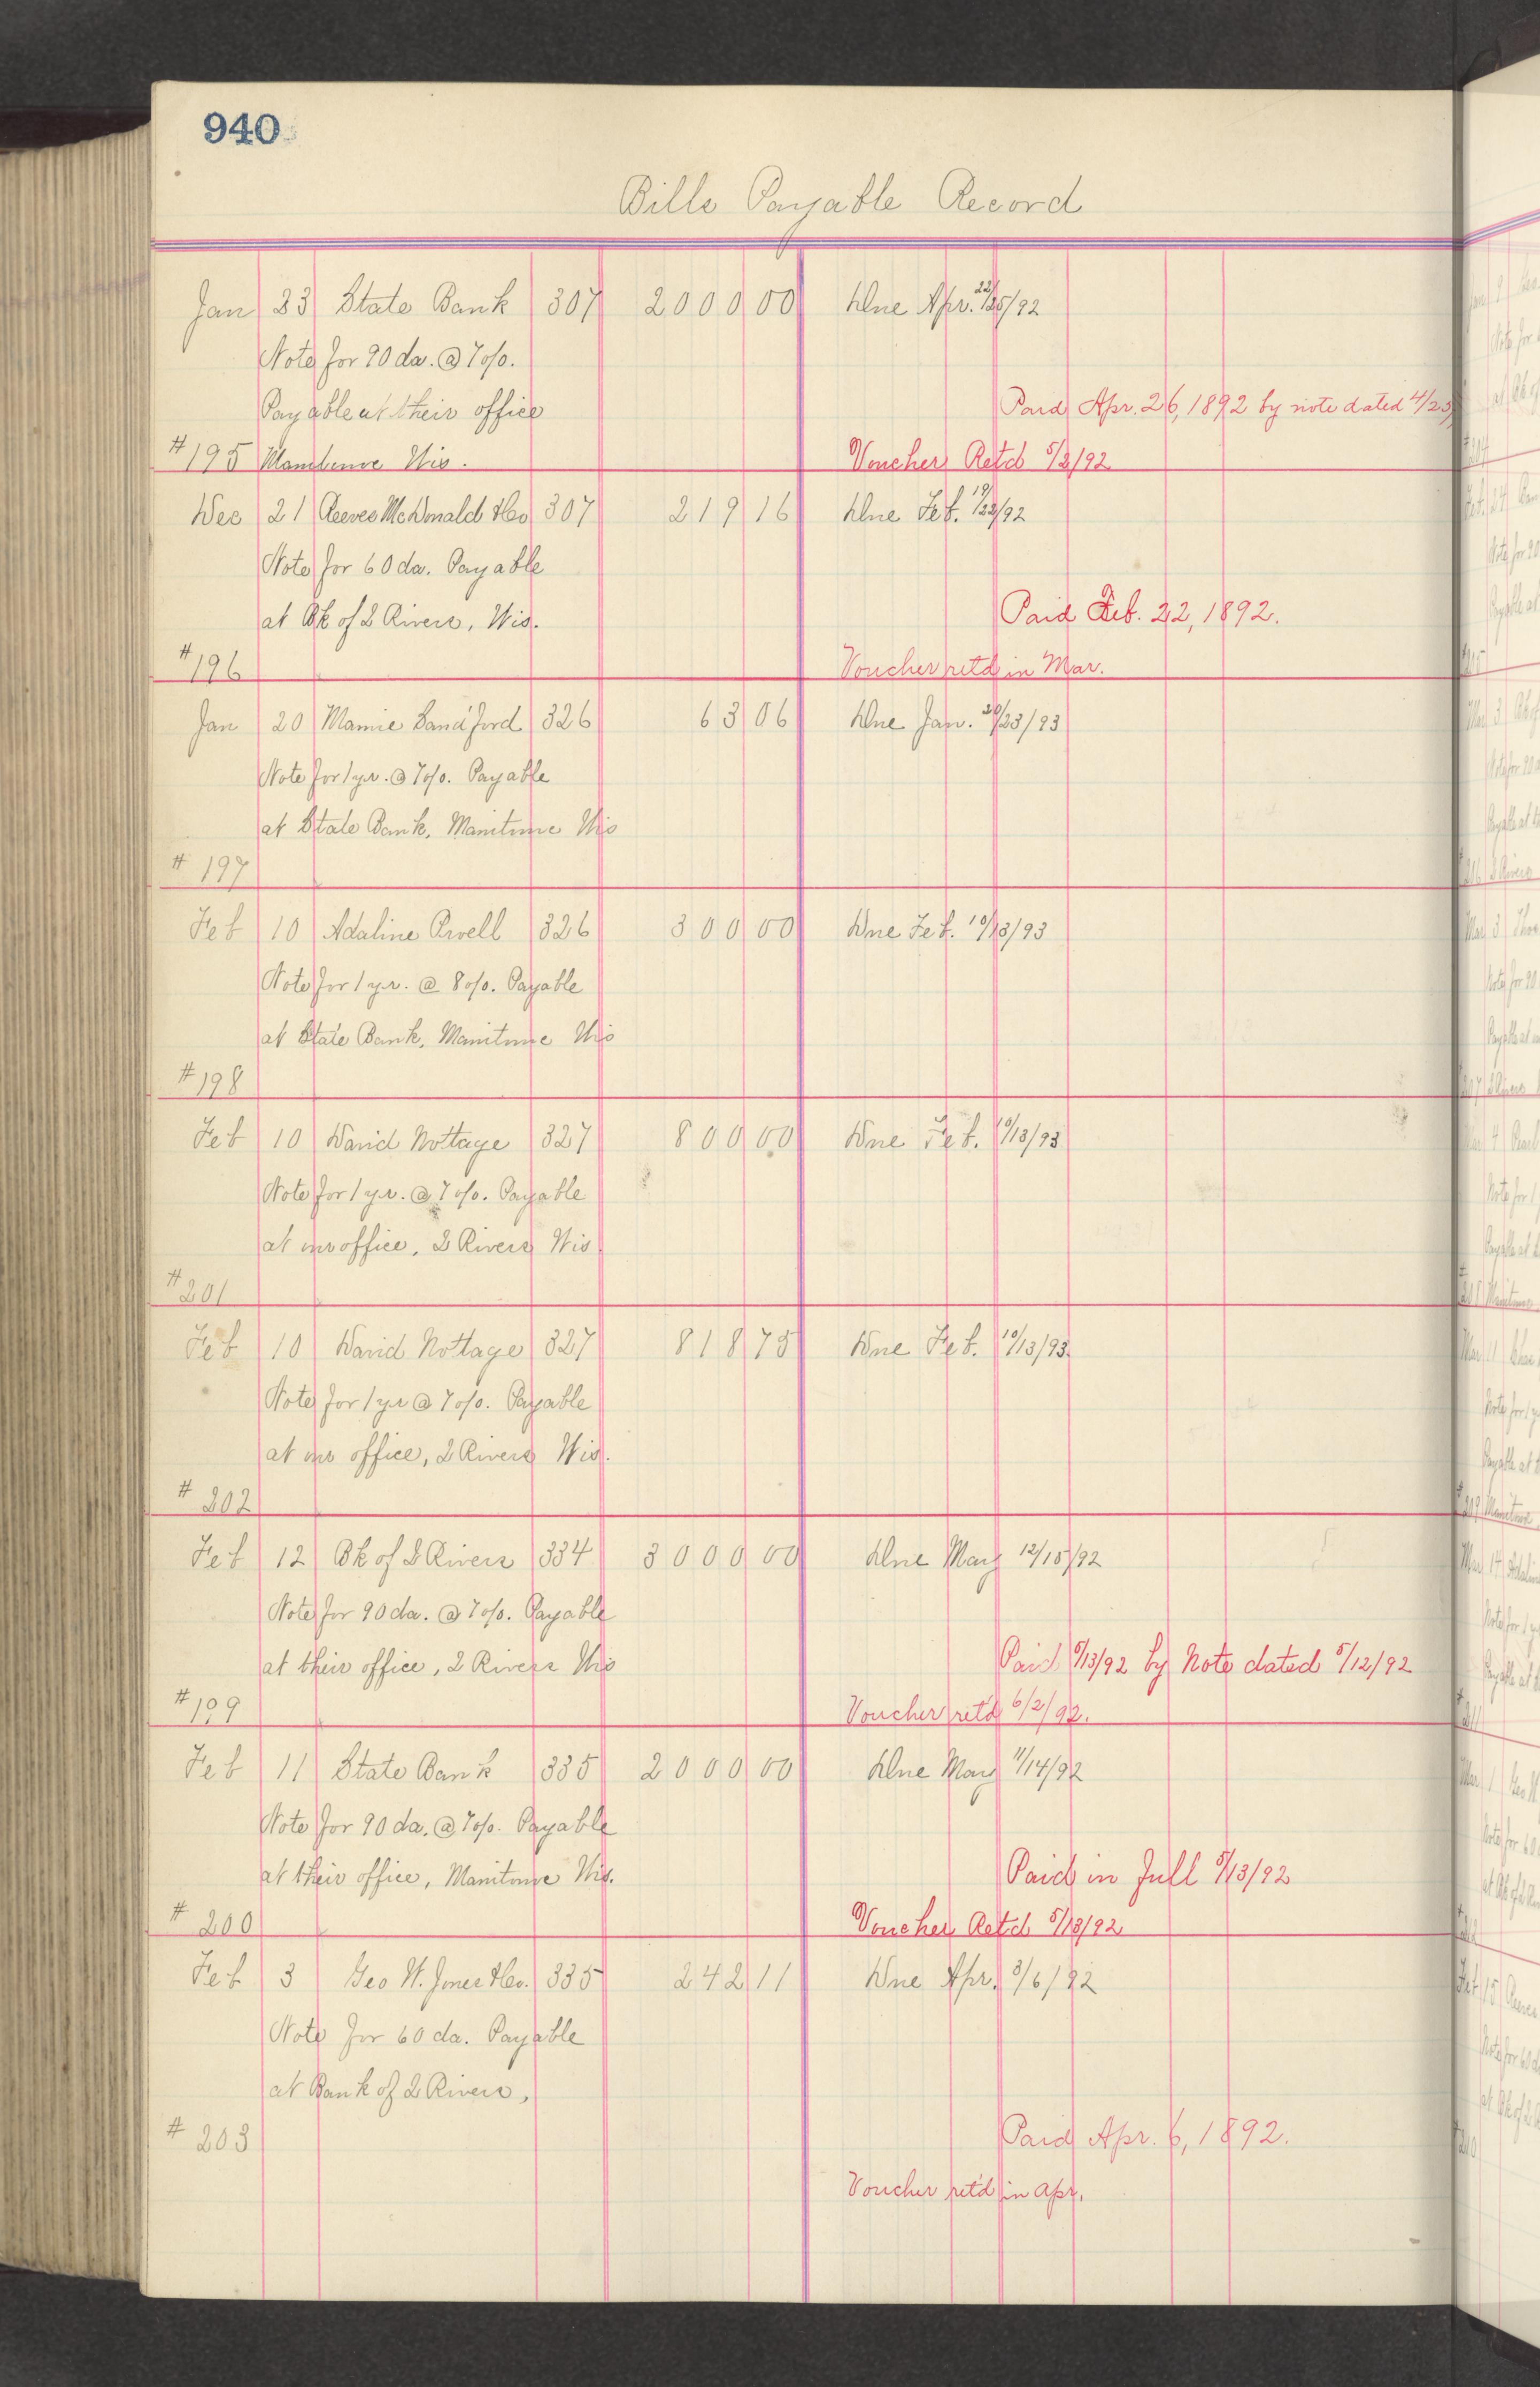 940
Bills Payable Record
Jan 23 State Bank 307 2000 00 Due Apr. 22/25/92
Note for 90 da. @ 7o/o.
Payable at their office Paid Apr. 26, 1892 by note dated 4/25
#195 Manitowoc Wis. Voucher Ret'd 5/2/92
Dec 21 Reeves McDonald & Co 307 219 16 Due Feb. 19/22/92
Note for 60 da. Payable
at Bk of 2 Rivers, Wis. Paid Feb. 22, 1892.
#196 Voucher ret'd in Mar.
Jan 20 Mamie Sandford 326 63 06 Due Jan. 20/23/93
Note for 1 yr. @ 7o/o. Payable
at State Bank, Manitowoc Wis
#197
Feb 10 Adaline 326 300 00 Due Feb. 10/13/93
Note for 1 yr. @ 8o/o. Payable
at State Bank, Manitowoc Wis
#198
Feb 10 David Nottage 327 800 00 Due Feb. 10/13/93
Note for 1 yr. @ 7o/o. Payable
at our office, 2 Rivers Wis
#201
Feb 10 David Nottage 327 818 75 Due Feb. 10/13/93
Note for 1 yr @ 7o/o. Payable
at our office, 2 Rivers Wis.
#202
Feb 12 Bk of 2 Rivers 334 3000 00 Due May 12/15/92
Note for 90 da. @ 7o/o. Payable
at their office, 2 Rivers Wis Paid 5/13/92 by Note dated 5/12/92
#199 Voucher ret'd 6/2/92.
Feb 11 State Bank 335 2000 00 Due May 11/14/92
Note for 90 da. @ 7o/o. Payable
at their office, Manitowoc Wis. Paid in full 5/13/92
#200 Voucher Ret'd 5/13/92
Feb 3 Geo W. Jones & Co. 335 242 11 Due Apr. 3/6/92
Note for 60 da. Payable
at Bank of 2 Rivers,
#203 Paid Apr. 6, 1892.
Voucher ret'd in Apr.